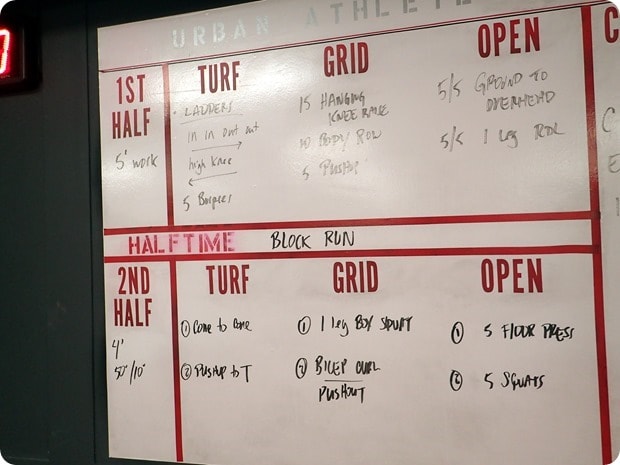 URBAN ATHLETE
1ST HALF
TURF
LADDERS
in in out out
high knee
5 Burpees
GRID
15 HANGING
KNEE RAISE
10 BODY ROW
5 PUSHUP
OPEN
5/5 GROUND TO
OVERHEAD
5/5 1 leg RDL
5' work
HALFTIME BLOCK RUN
2ND HALF
4'
50"/10"
TURF
① Cone to Cone
② PUSHUP to T
GRID
① 1 leg BOX SQUAT
② BICEP CURL
PUSHOUT
OPEN
① 5 FLOOR PRESS
② 5 SQUATS
C
C
E